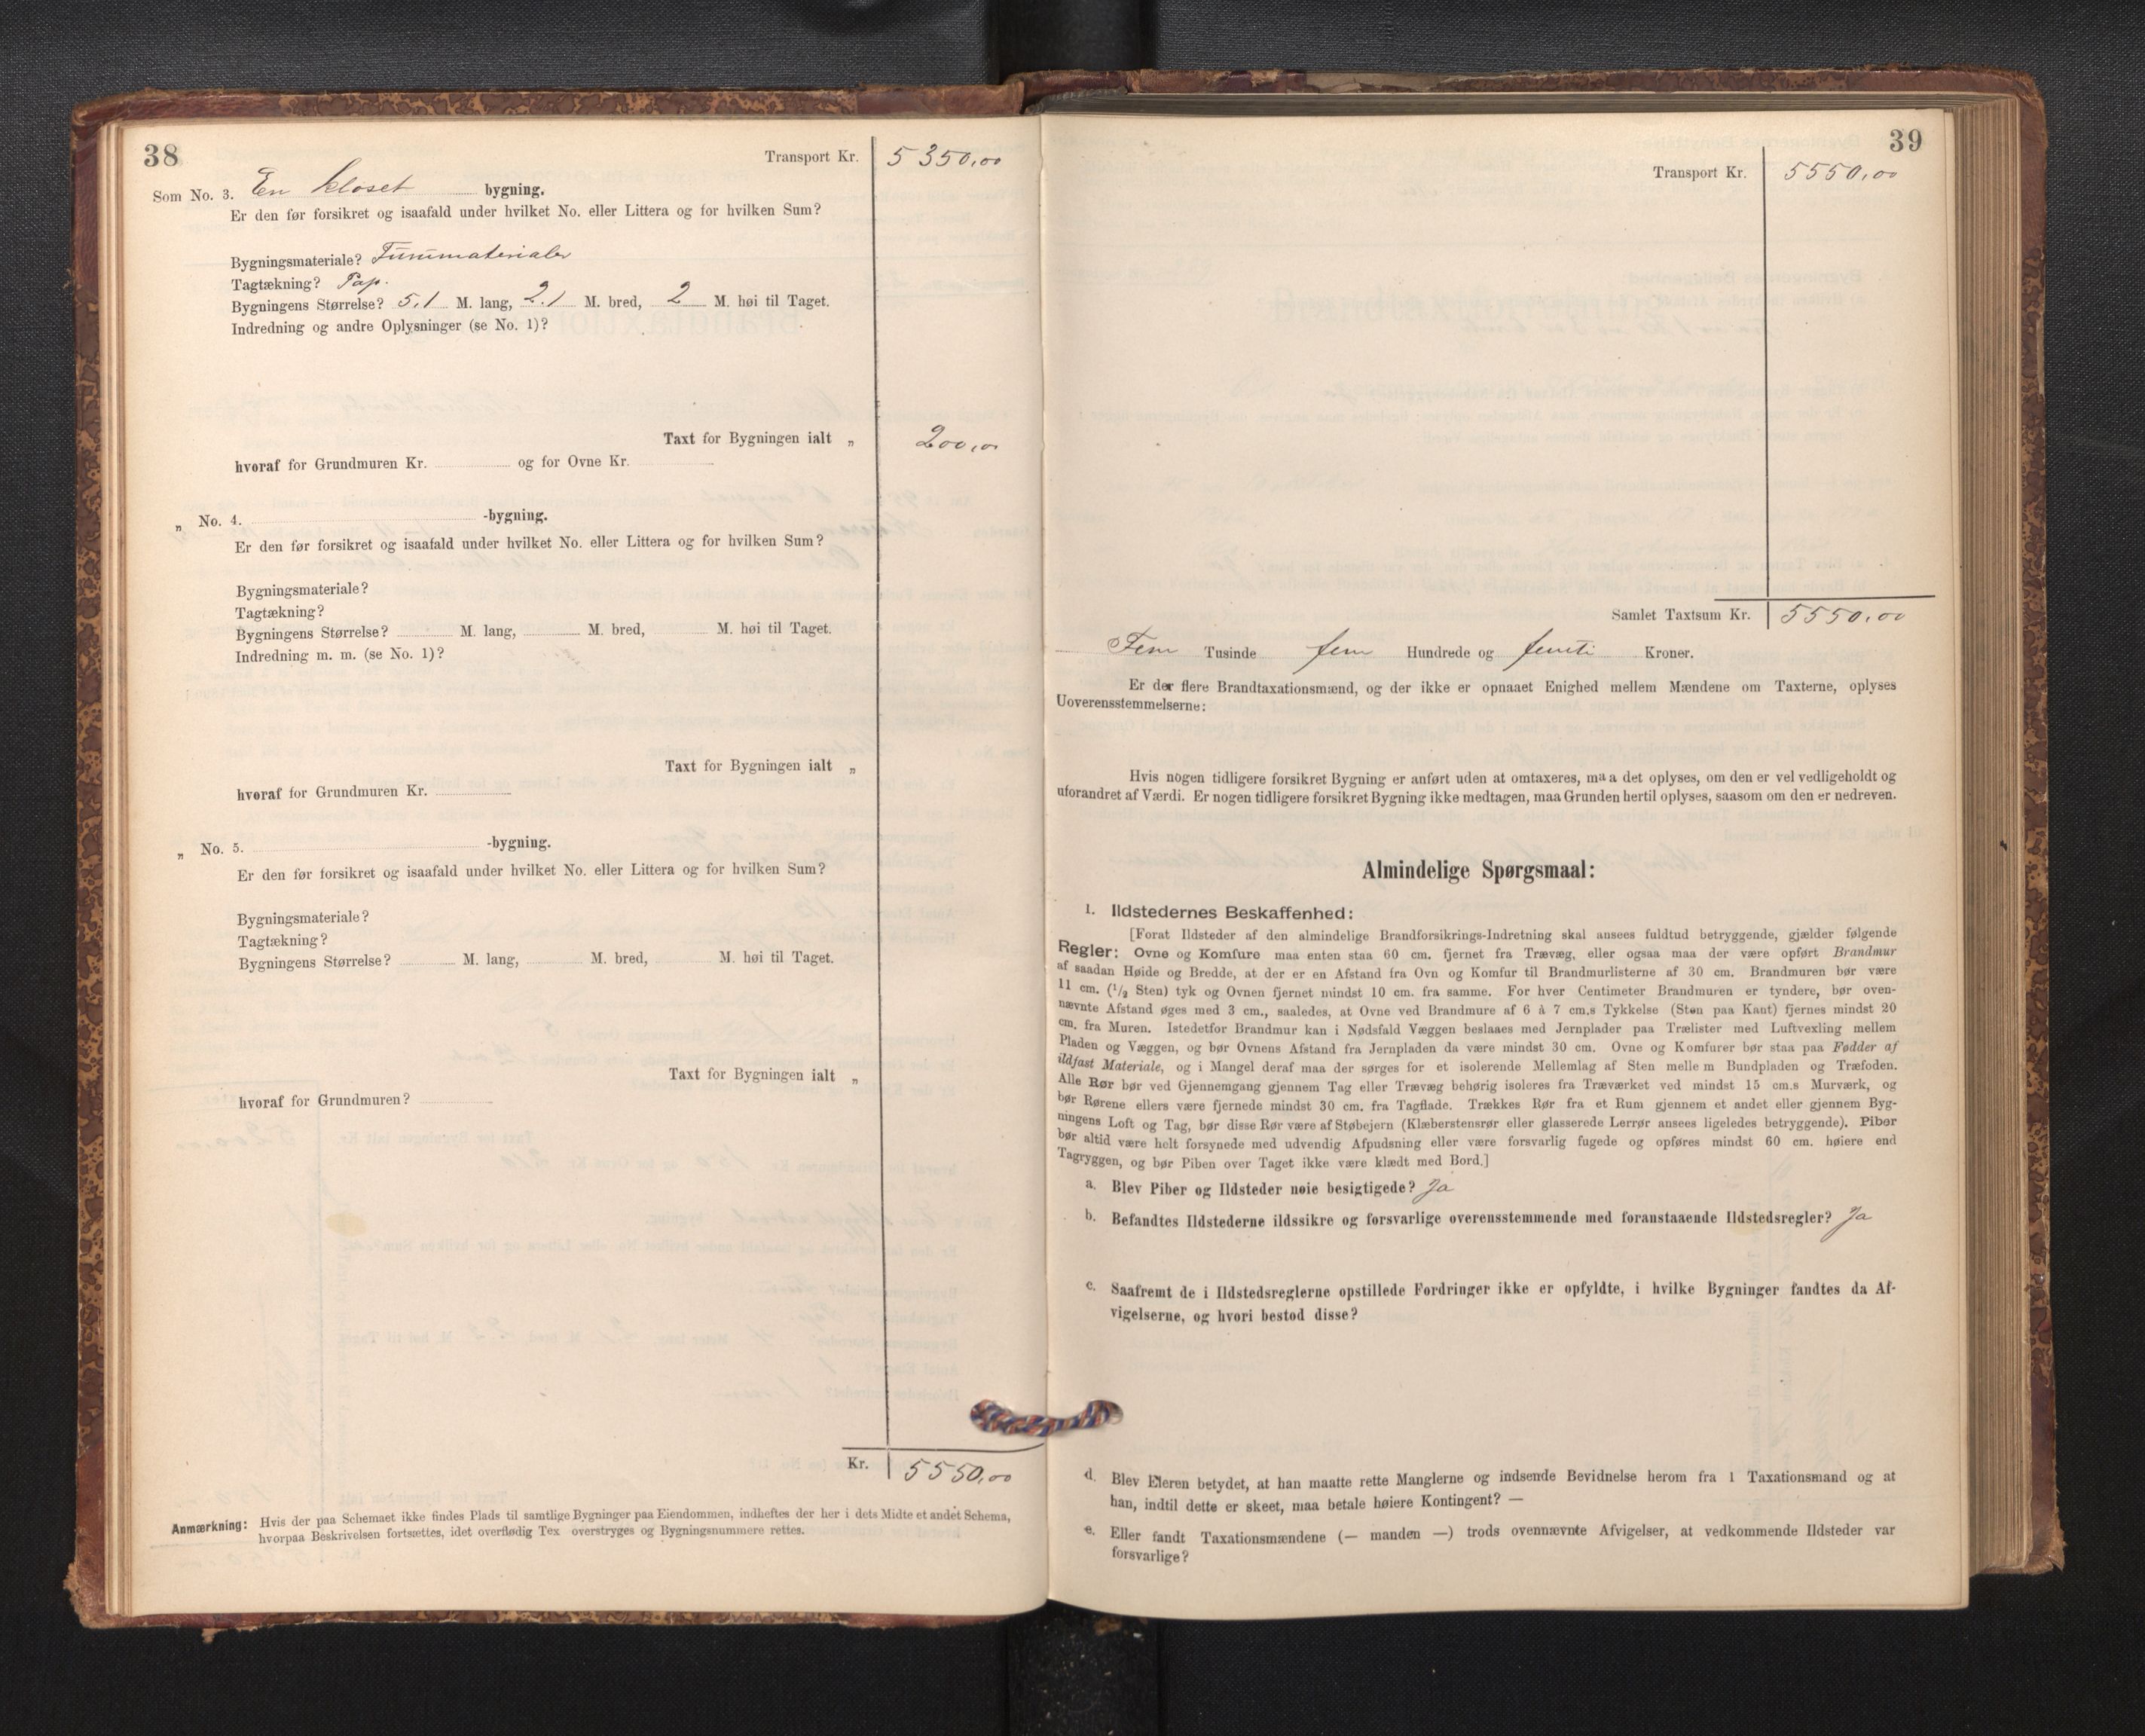 38
Transport Kr. 5350,00
Som No. 3. En kloset bygning.
Er den før forsikret og isaafald under hvilket No. eller Littera og for hvilken Sum?
Bygningsmateriale?
Tagtækning? Pap.
Bygningens Størrelse? 5,1 M. lang, 2.1 M. bred, 2 M. høi til Taget.
Indredning og andre Oplysninger (se No. 1)?
Taxt for Bygningen ialt „ 200,00
hvoraf for Grundmuren Kr. og for Ovne Kr.
„ No. 4. -bygning.
Er den før forsikret og isaafald under hvilket No. eller Littera og for hvilken Sum?
Bygningsmateriale?
Tagtækning?
Bygningens Størrelse? M. lang, M. bred, M. høi til Taget.
Indredning m. m. (se No. 1)?
Taxt for Bygningen ialt „
hvoraf for Grundmuren Kr.
„ No. 5. -bygning.
Er den før forsikret og isaafald under hvilket No. eller Littera og for hvilken Sum?
Bygningsmateriale?
Tagtækning?
Bygningens Størrelse? M. lang, M. bred, M. høi til Taget.
Taxt for Bygningen ialt „
hvoraf for Grundmuren?
Kr. 5550,00
Anmærkning: Hvis der paa Schemaet ikke findes Plads til samtlige Bygninger paa Eiendommen, indheftes der her i dets Midte et andet Schema,
hvorpaa Beskrivelsen fortsættes, idet overflødig Tex overstryges og Bygningsnummere rettes.
39
Transport Kr. 5550,00
Samlet Taxtsum Kr. 5550,00
Fem Tusinde fem Hundrede og femti Kroner.
Er der flere Brandtaxationsmænd, og der ikke er opnaaet Enighed mellem Mændene om Taxterne, oplyses
Uoverensstemmelserne:
Hvis nogen tidligere forsikret Bygning er anført uden at omtaxeres, maa det oplyses, om den er vel vedligeholdt og
uforandret af Værdi. Er nogen tidligere forsikret Bygning ikke medtagen, maa Grunden hertil oplyses, saasom om den er nedreven.
Almindelige Spørgsmaal:
1. Ildstedernes Beskaffenhed:
[Forat Ildsteder af den almindelige Brandforsikrings-Indretning skal ansees fuldtud betryggende, gjælder følgende
Regler: Ovne og Komfure maa enten staa 60 cm. fjernet fra Trævæg, eller ogsaa maa der være opført Brandmur
af saadan Høide og Bredde, at der er en Afstand fra Ovn og Komfur til Brandmurlisterne af 30 cm. Brandmuren bør være
11 cm. (1/2 Sten) tyk og Ovnen fjernet mindst 10 cm. fra samme. For hver Centimeter Brandmuren er tyndere, bør oven-
nævnte Afstand øges med 3 cm., saaledes, at Ovne ved Brandmure af 6 à 7 cm.s Tykkelse (Sten paa Kant) fjernes mindst 20
cm. fra Muren. Istedetfor Brandmur kan i Nødsfald Væggen beslaaes med Jernplader paa Trælister med Luftvexling mellem
Pladen og Væggen, og bør Ovnens Afstand fra Jernpladen da være mindst 30 cm. Ovne og Komfurer bør staa paa Fødder af
ildfast Materiale, og i Mangel deraf maa der sørges for et isolerende Mellemlag af Sten mellem Bundpladen og Træfoden.
Alle Rør bør ved Gjennemgang gjennem Tag eller Trævæg behørig isoleres fra Træværket ved mindst 15 cm.s Murværk, og
bør Rørene ellers være fjernede mindst 30 cm. fra Tagflade. Trækkes Rør fra et Rum gjennem et andet eller gjennem Byg-
ningens Loft og Tag, bør disse Rør være af Støbejern (Klæberstensrør eller glasserede Lerrør ansees ligeledes betryggende). Piber
bør altid være helt forsynede med udvendig Afpudsning eller være forsvarlig fugede og opføres mindst 60 cm. høiere end
Tagryggen, og bør Piben over Taget ikke være klædt med Bord.]
a. Blev Piber og Ildsteder nøie besigtigede? Ja
b. Befandtes Ildstederne ildssikre og forsvarlige overensstemmende med foranstaaende Ildstedsregler? Ja
c. Saafremt de i Ildstedsreglerne opstillede Fordringer ikke er opfyldte, i hvilke Bygninger fandtes da Af-
vigelserne, og hvori bestod disse?
d. Blev Eieren betydet, at han maatte rette Manglerne og indsende Bevidnelse herom fra 1 Taxationsmand og at
han, indtil dette er skeet, maa betale høiere Kontingent? —
e. Eller fandt Taxationsmændene (— manden —) trods ovennævnte Afvigelser, at vedkommende Ildsteder var
forsvarlige?